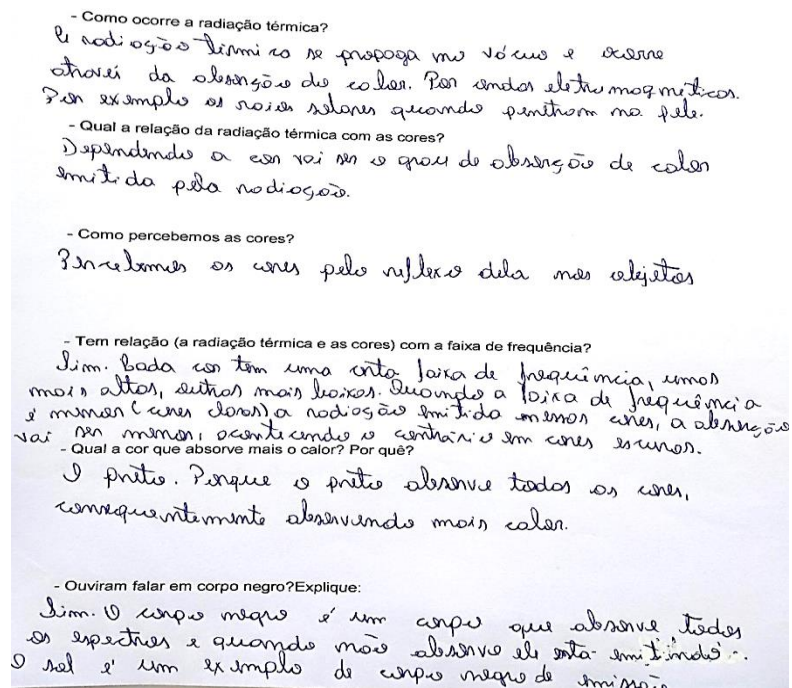 - Como ocorre a radiação térmica?
A radiação térmica se propaga no vácuo e ocorre
através da absorção do calor. Por ondas eletromagnéticas.
Por exemplo os raios solares quando penetram na pele.
- Qual a relação da radiação térmica com as cores?
Dependendo a cor vai ser o grau de absorção de calor
emitida pela radiação.
- Como percebemos as cores?
Percebemos as cores pelo reflexo dela nos objetos
- Tem relação (a radiação térmica e as cores) com a faixa de frequência?
Sim. Cada cor tem uma certa faixa de frequência, umas
mais altas, outras mais baixas. Quando a faixa de frequência
é menor (cores claras) a radiação emitida nessas cores, a absorção
vai ser menor, acontecendo o contrário em cores escuras.
- Qual a cor que absorve mais o calor? Por quê?
O preto. Porque o preto absorve todas as cores,
consequentemente absorvendo mais calor.
- Ouviram falar em corpo negro?Explique:
Sim. O corpo negro é um corpo que absorve todos
os espectros e quando não absorve ele esta emitindo.
O sol é um exemplo de corpo negro de emissão